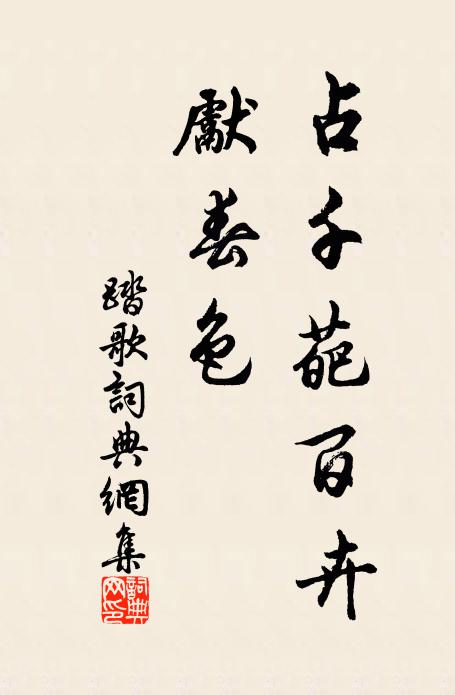 占千葩百卉
獻春色
踏歌詞典網集
詞典网印